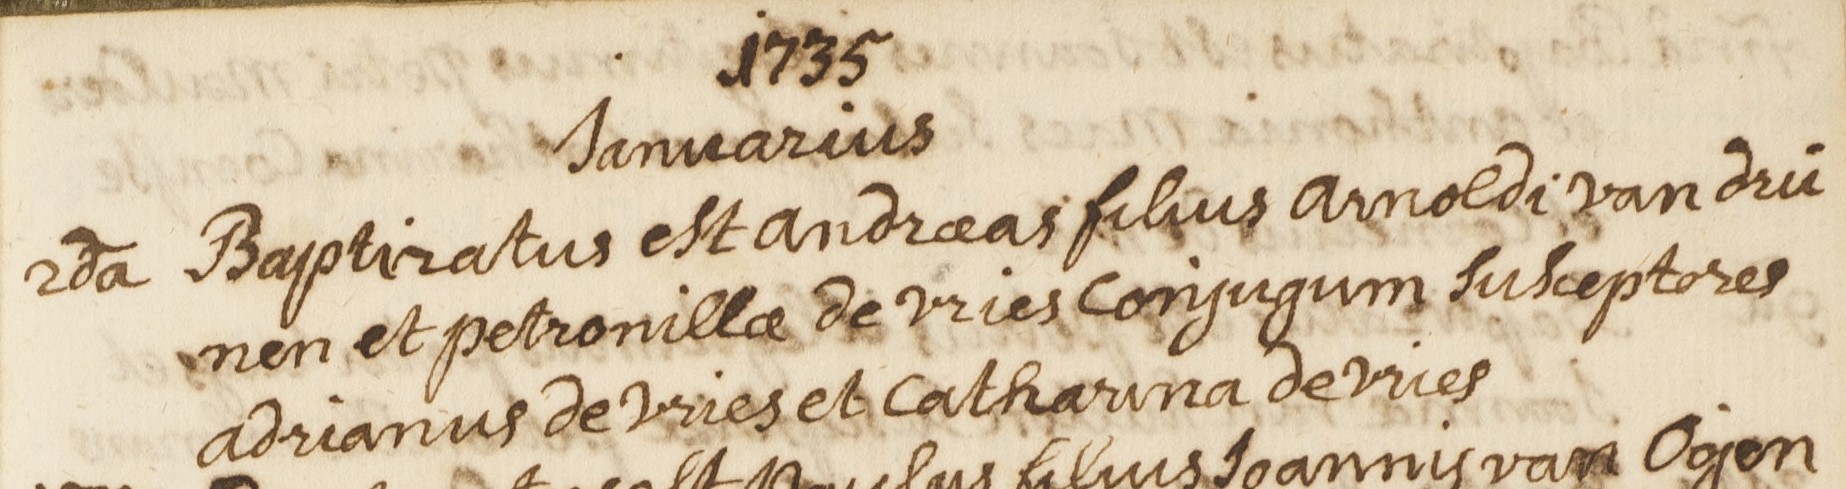 1735
Ianuarius
2da Baptizatus est Andræas filius Arnoldi van drü
nen et petronillæ de vries Conjugum Susceptores
adrianus de vries et Catharina de vries
est Paulus filius Joannis van Ogen